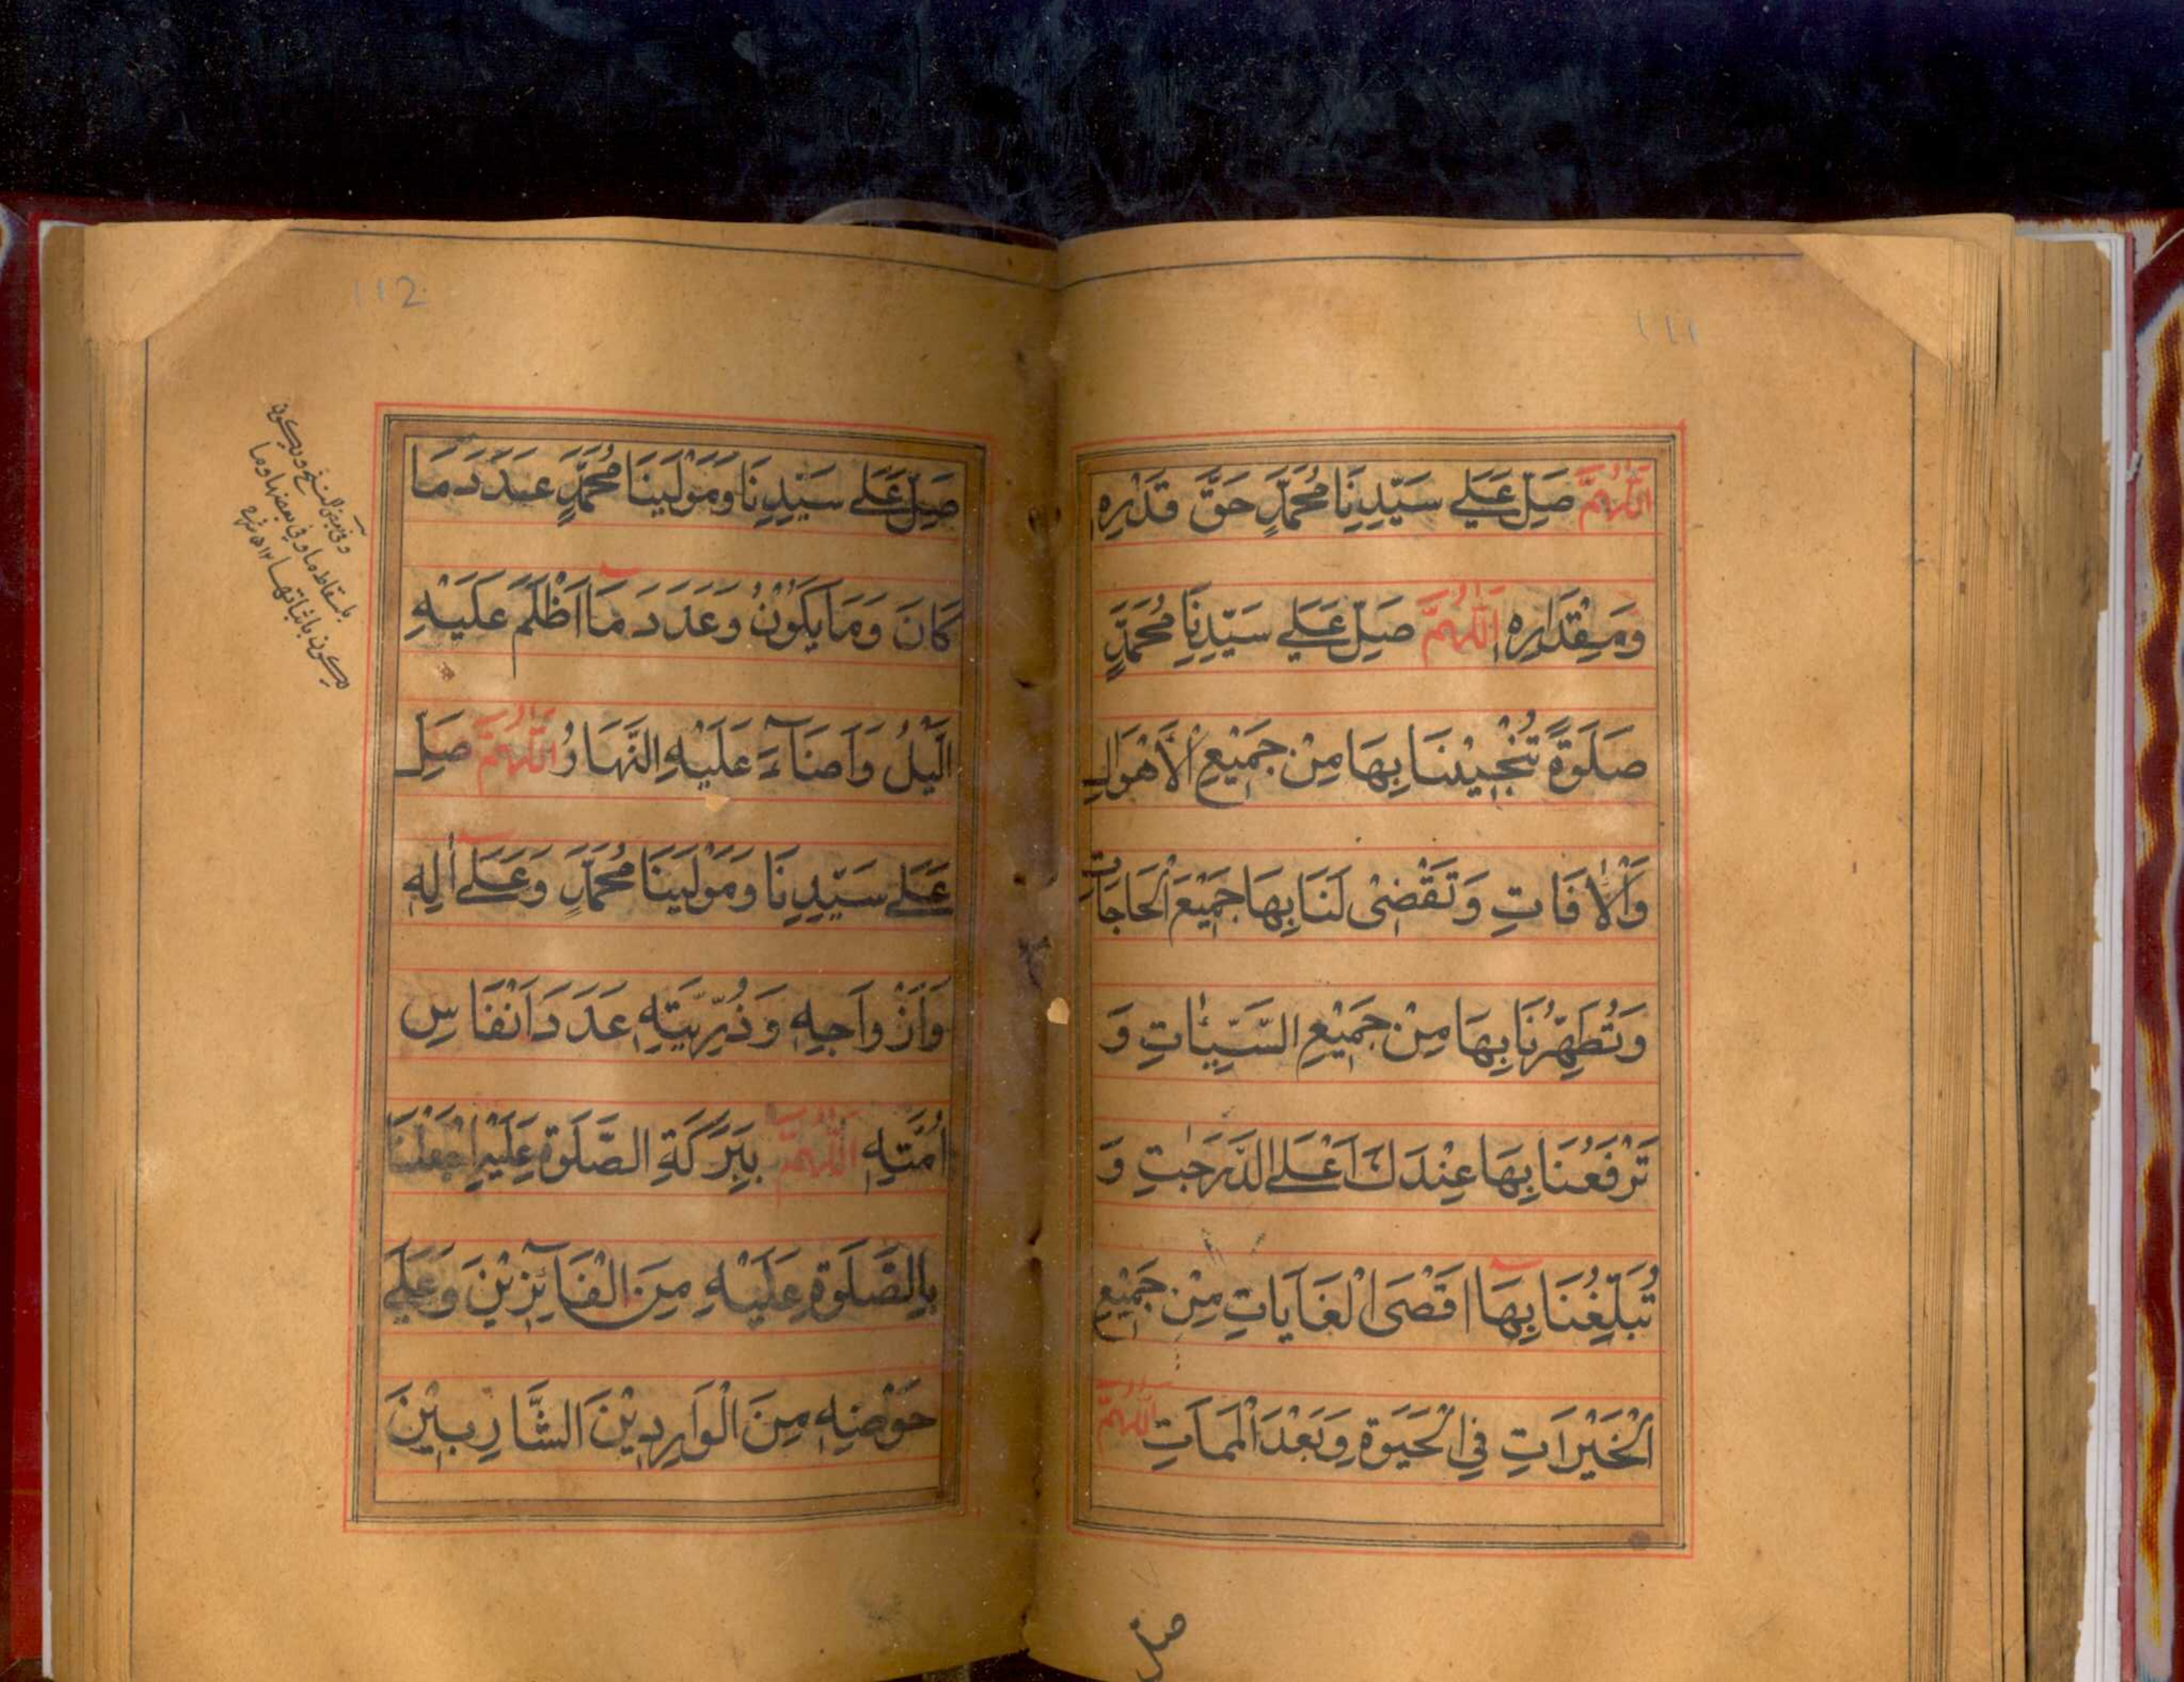 111
اَللّٰهُمَّ صَلِّ عَلٰے سَيِّدِنَا مُحَمَّدٍ حَقَّ قَدْرِهٖ
وَمِقْدَارِهٖ اَللّٰهُمَّ صَلِّ عَلٰے سَيِّدِنَا مُحَمَّدٍ
صَلٰوةً تُنْجِيْنَا بِهَا مِنْ جَمِيْعِ الْاَهْوَالِ
وَالْاٰفَاتِ وَتَقْضِىْ لَنَا بِهَا جَمِيْعَ الْحَاجَاتِ
وَتُطَهِّرُنَا بِهَا مِنْ جَمِيْعِ السَّيِّئٰاتِ وَ
تَرْفَعُنَا بِهَا عِنْدَكَ اَعْلَے الدَّرَجٰتِ وَ
تُبَلِّغُنَا بِهَا اَقْصَى الْغَايَاتِ مِنْ جَمِيْعِ
الْخَيْرَاتِ فِى الْحَيٰوةِ وَبَعْدَ الْمَمَاتِ اَللّٰهُمَّ
صل
112
صَلِّ عَلٰے سَيِّدِنَا وَمَوْلٰينَا مُحَمَّدٍ عَدَدَ مَا
كَانَ وَمَا يَكُوْنُ وَعَدَدَ مَا اَظْلَمَ عَلَيْهِ
الَّيْلُ وَاَضَآءَ عَلَيْهِ النَّهَارُ اَللّٰهُمَّ صَلِّ
عَلٰے سَيِّدِنَا وَمَوْلٰينَا مُحَمَّدٍ وَعَلٰٓے اٰلِهٖ
وَاَزْوَاجِهٖ وَذُرِّيَّتِهٖ عَدَدَ اَنْفَاسِ
اُمَّتِهٖ اَللّٰهُمَّ بِبَرَكَةِ الصَّلٰوةِ عَلَيْهِ اجْعَلْنَا
بِالصَّلٰوةِ عَلَيْهِ مِنَ الْفَآئِزِيْنَ وَعَلٰے
حَوْضِهٖ مِنَ الْوَارِدِيْنَ الشَّارِبِيْنَ
وفى بعض النسخ ويكون
باسقاط ما وفى بعضها وما
يكون باثباتها ١٢